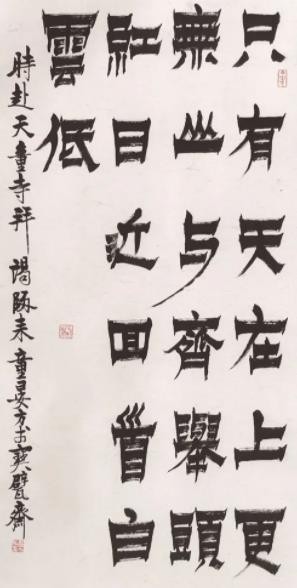 只有天在上更
無山与齊舉頭
紅日近回首白
雲低
時赴天童寺拜謁歸来童晏方於寶甓齋